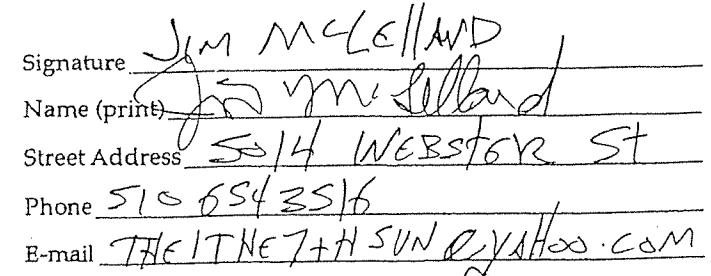 Signature JIM MCLEllAND
Name (print) Jim McLelland
Street Address 5014 WEBSTER St
Phone 510 654 3516
E-mail THE1THE7tHSUN@yAHoo.coM